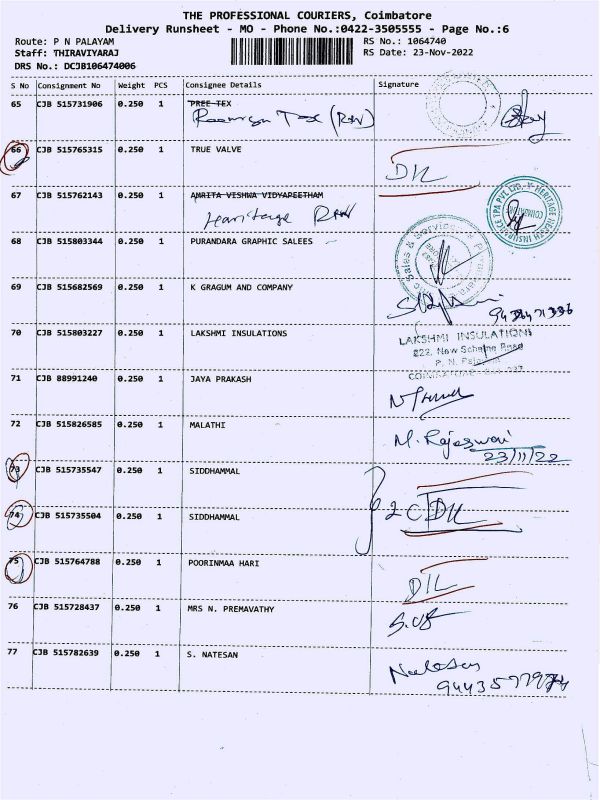 THE PROFESSIONAL COURIERS, Coimbatore
Delivery Runsheet - MO - Phone No.:0422-3505555 - Page No.:6
Route: P N PALAYAM RS No.: 1064740
Staff: THIRAVIYARAJ RS Date: 23-Nov-2022
DRS No.: DCJB106474006
S No Consignment No Weight PCS Consignee Details Signature
65 CJB 515731906 0.250 1 PREE TEX
Tex (RW)
66 CJB 515765315 0.250 1 TRUE VALVE
DIL
67 CJB 515762143 0.250 1 AMRITA VISHWA VIDYAPEETHAM
Haritage RW
HERITAGE HEALTH INSURANCE TPA PVT LTD.
68 CJB 515803344 0.250 1 PURANDARA GRAPHIC SALEES
Sales & Services
69 CJB 515682569 0.250 1 K GRAGUM AND COMPANY
70 CJB 515803227 0.250 1 LAKSHMI INSULATIONS
LAKSHMI INSULATIONS
222, New Scheme Road
P. N.
71 CJB 88991240 0.250 1 JAYA PRAKASH
72 CJB 515826585 0.250 1 MALATHI
M. Rajeswari
23/11/22
73 CJB 515735547 0.250 1 SIDDHAMMAL
74 CJB 515735504 0.250 1 SIDDHAMMAL
2 C DIL
75 CJB 515764788 0.250 1 POORINMAA HARI
DIL
76 CJB 515728437 0.250 1 MRS N. PREMAVATHY
77 CJB 515782639 0.250 1 S. NATESAN
Natesan